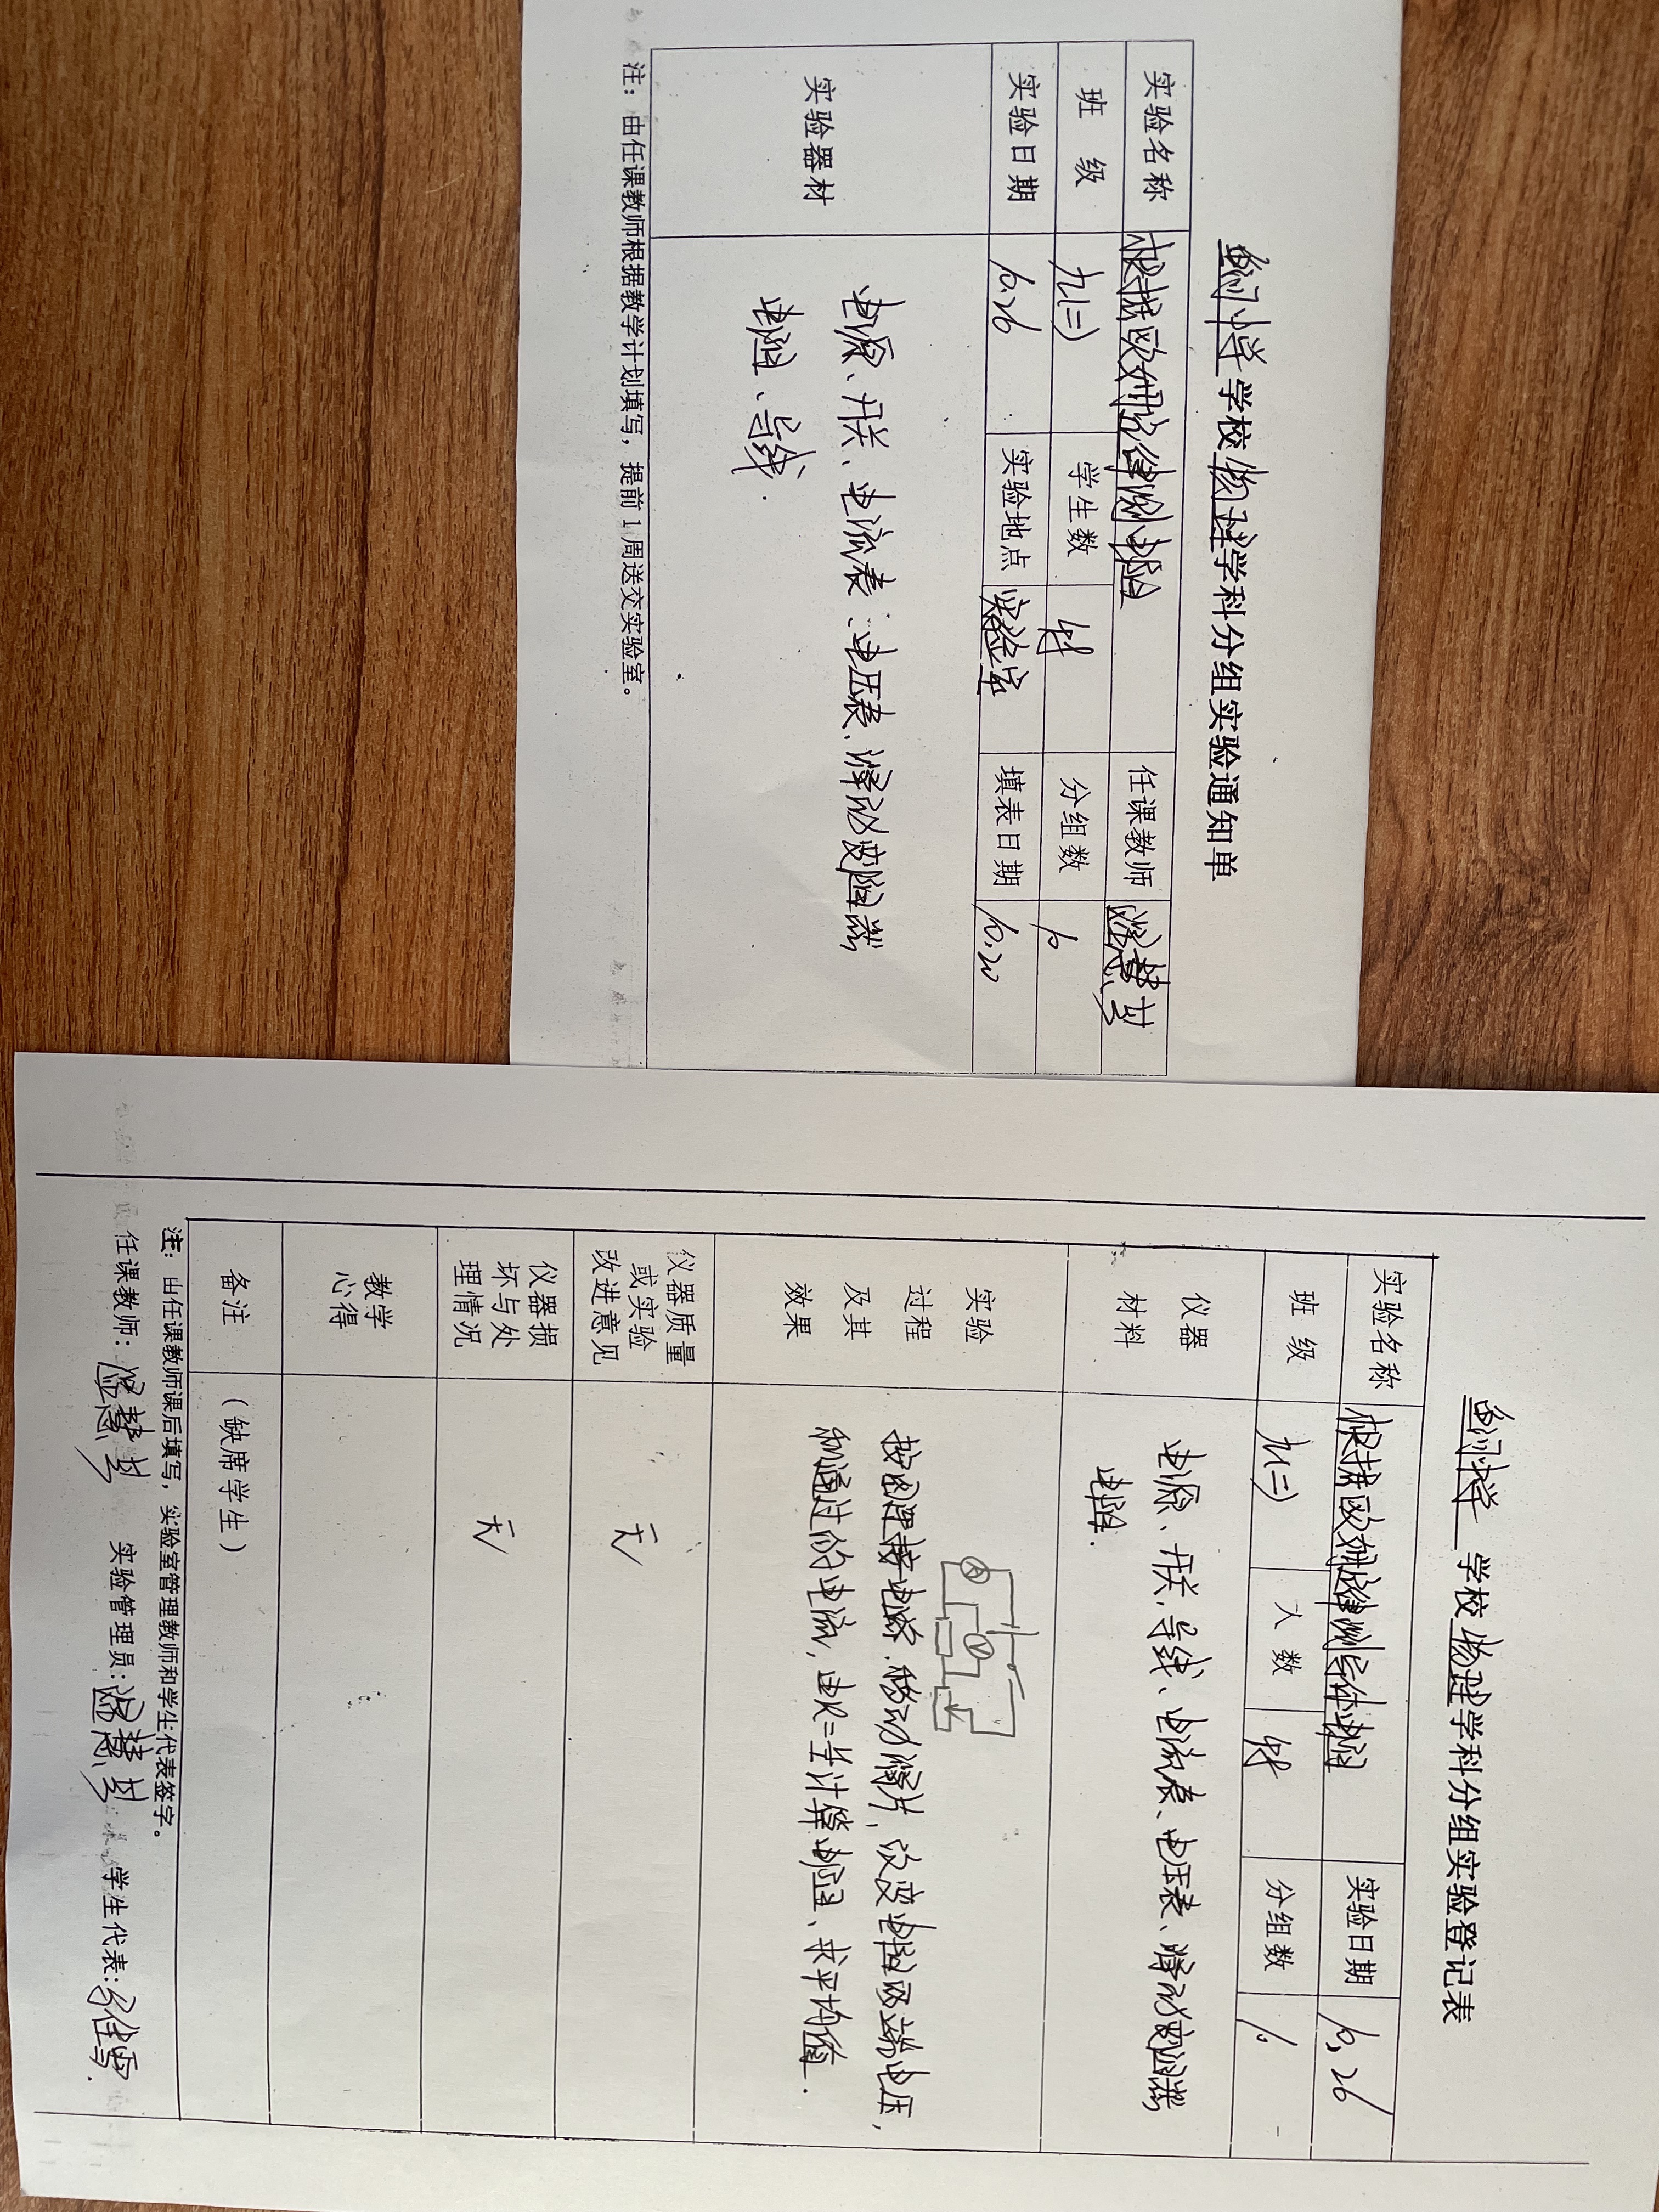 学校物理学科分组实验通知单
实验名称 根据欧姆定律测电阻 任课教师
班 级 九(二) 学生数 分组数 10
实验日期 10.26 实验地点 实验室 填表日期 10.20
实验器材 电源、开关、电流表、电压表、滑动变阻器
电阻、导线.
注：由任课教师根据教学计划填写，提前1周送交实验室。
学校物理学科分组实验登记表
实验名称 根据欧姆定律测导体电阻 实验日期 10.26
班 级 九(二) 人 数 分组数 10
仪器
材料
电源、开关、导线、电流表、电压表、滑动变阻器
电阻.
实验
过程
及其
效果
A V
按图连接电路.移动滑片,改变电阻两端电压,
和通过的电流,由R=U/I计算电阻、求平均值.
仪器质量
或实验
改进意见
无
仪器损
坏与处
理情况
无
教学
心得
备注 (缺席学生)
注：由任课教师课后填写，实验室管理教师和学生代表签字。
任课教师: 实验管理员: 学生代表: